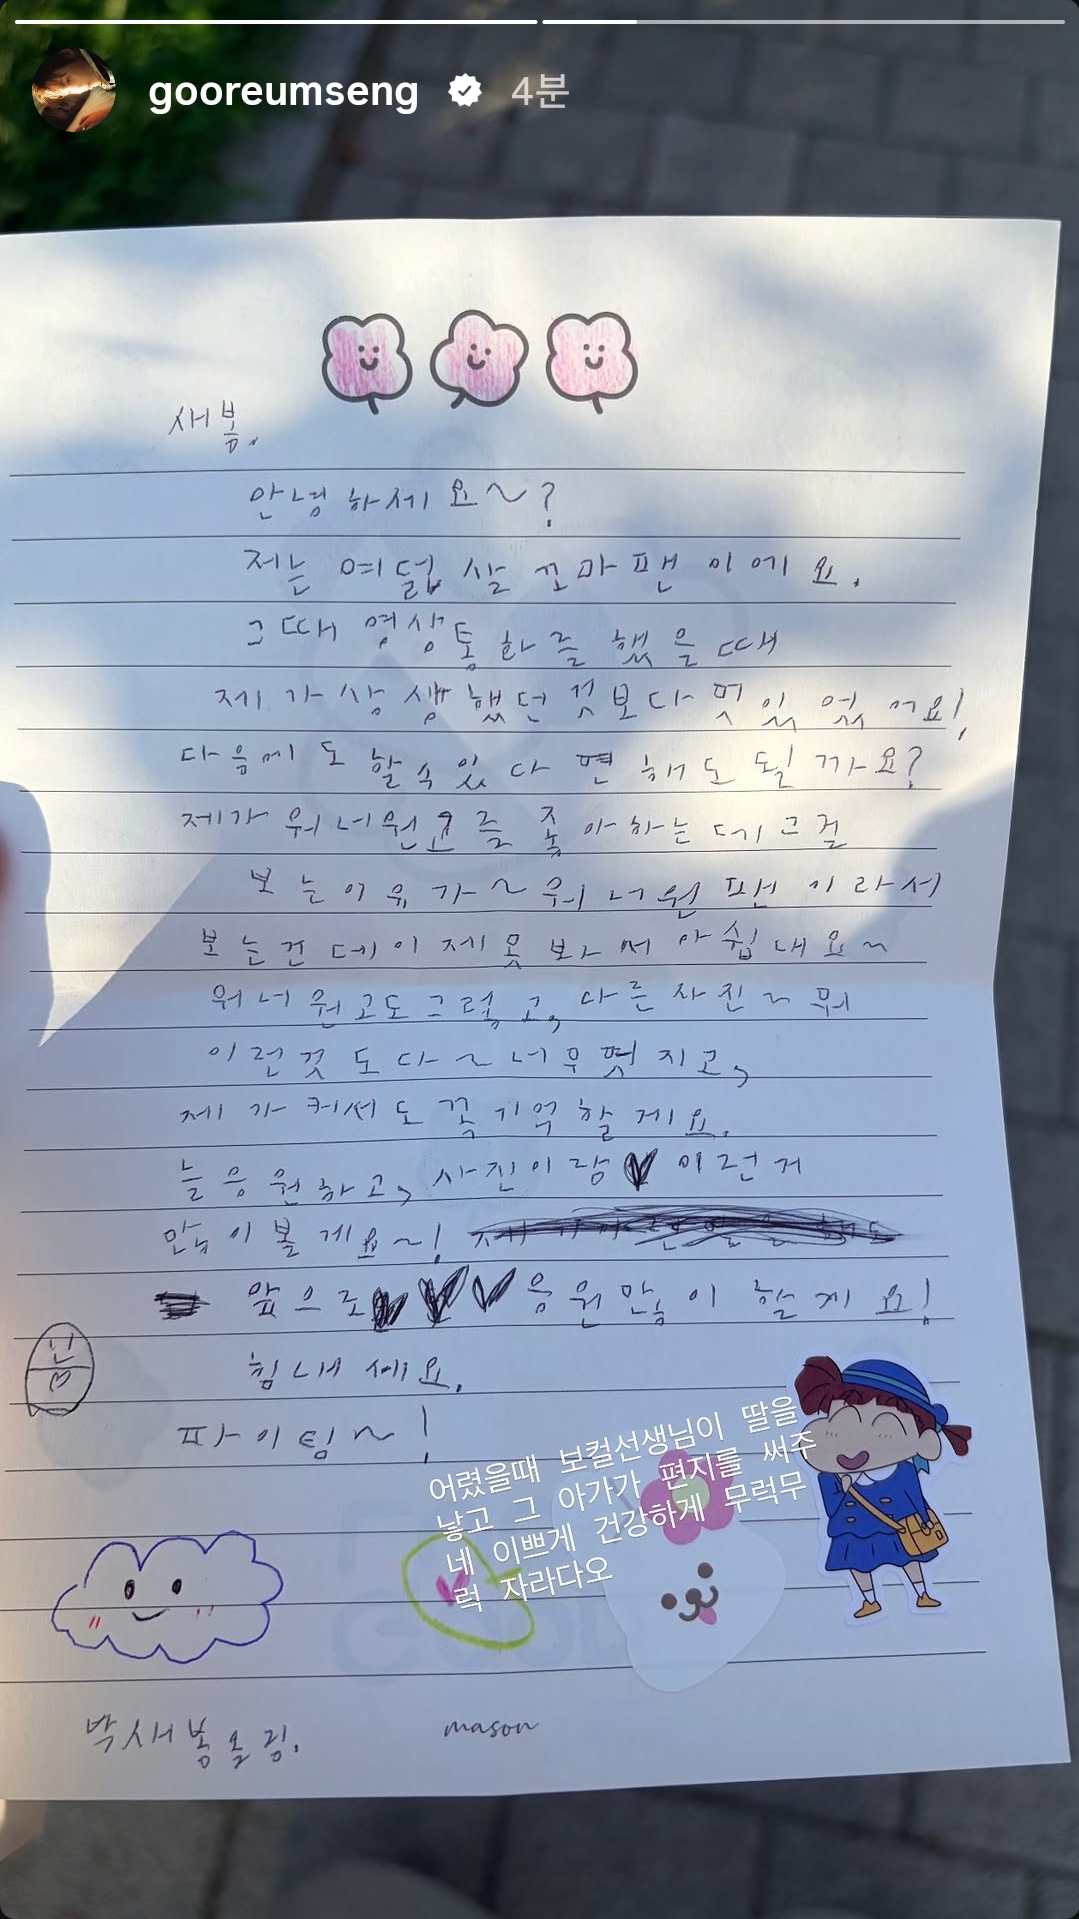 gooreumseng 4분
새봄.
안녕하세요~?
저는 여덟살 꼬마팬이에요.
그때 영상통화를 했을때
제가 상생했던 것보다 멋있었어요!
다음에도 할수있다면 해도 될까요?
제가 워너원요즘 좋아하는데 그걸
보는이유가~ 워너원 팬이라서
보는건데 이제 못봐서 아쉽내요~
워너원고도 그렇고, 다른사진~ 뭐
이런것도 다~ 너무 멋지고,
제가 커서도 꼭 기억할게요.
늘 응원하고, 사진이랑 이런거
많이 볼게요~!
앞으로 응원 많이 할게요!
힘내세요.
파이팅~!
어렸을때 보컬선생님이 딸을
낳고 그 아가가 편지를 써주
네 이쁘게 건강하게 무럭무
럭 자라다오
박새봄올림.
mason